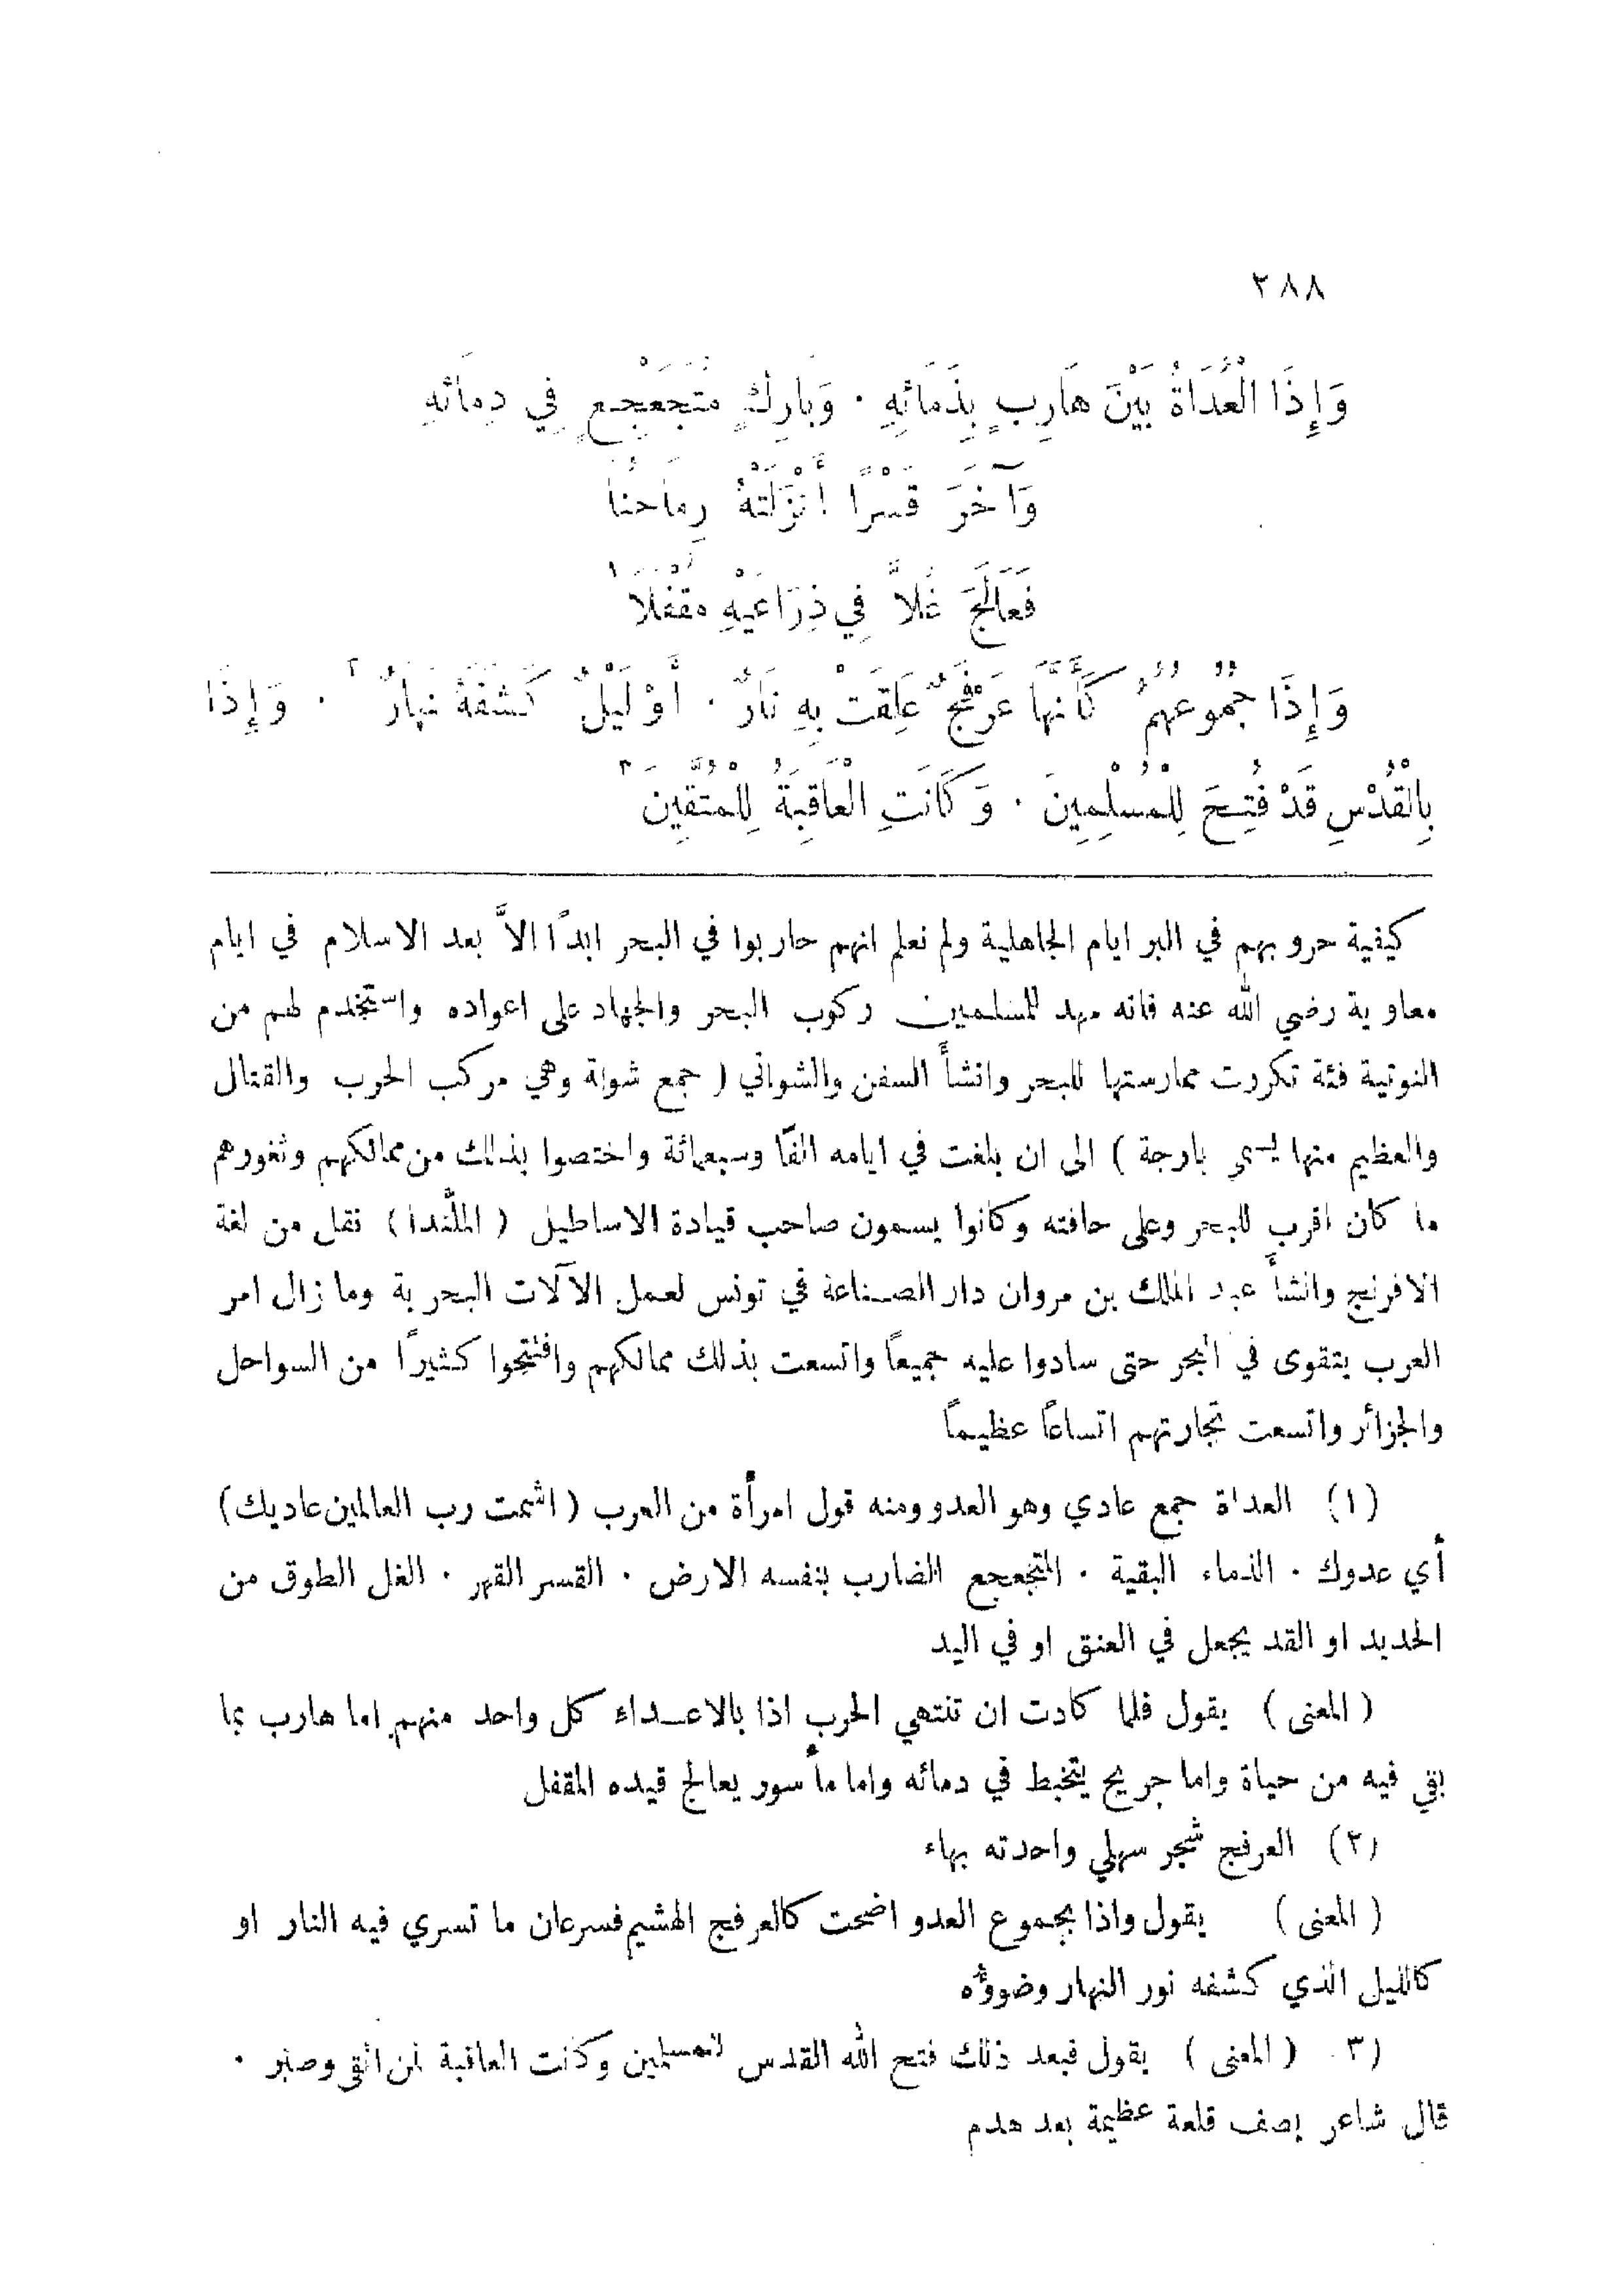 ٢٨٨
وَإِذَا الْعُدَاةُ بَيْنَ هَارِبٍ بِذَمَائِهِ · وَبَارِكٍ مُتَجَعْجِعٍ فِي دِمَائِهِ
وَآخَرَ قَسْرًا أَنْزَلَتْهُ رِمَاحُنَا
فَعَالَجَ غُلاًّ فِي ذِرَاعَيْهِ مُقْفَلَا ١
وَإِذَا جُمُوعُهُمْ كَأَنَّهَا عَرْفَجٌ عَلِقَتْ بِهِ نَارٌ · أَوْ لَيْلٌ كَشَفَهُ نَهَارٌ ٢ · وَإِذَا
بِالْقُدْسِ قَدْ فُتِحَ لِلْمُسْلِمِينَ · وَكَانَتِ الْعَاقِبَةُ لِلْمُتَّقِينَ ٣
كيفية حروبهم في البر ايام الجاهلية ولم نعلم انهم حاربوا في البحر ابدًا الاَّ بعد الاسلام في ايام
معاوية رضي الله عنه فانه مهد للمسلمين ركوب البحر والجهاد على اعواده واستخدم لهم من
النوتية فئة تكررت ممارستها للبحر وانشأ السفن والشواني ( جمع شونة وهي مركب الحرب والقتال
والعظيم منها يسمى بارجة ) الى ان بلغت في ايامه الفًا وسبعمائة واختصوا بذلك من ممالكهم وثغورهم
ما كان اقرب للبحر وعلى حافته وكانوا يسمون صاحب قيادة الاساطيل ( الملَّندا ) نقل من لغة
الافرنج وانشأ عبد الملك بن مروان دار الصناعة في تونس لعمل الآلات البحرية وما زال امر
العرب يتقوى في البحر حتى سادوا عليه جميعًا واتسعت بذلك ممالكهم وافتتحوا كثيرًا من السواحل
والجزائر واتسعت تجارتهم اتساعًا عظيمًا
(١) العداة جمع عادي وهو العدو ومنه قول امرأة من العرب ( اشمت رب العالمين عاديك )
أي عدوك · الذماء البقية · المتجعجع الضارب بنفسه الارض · القسر القهر · الغل الطوق من
الحديد او القد يجعل في العنق او في اليد
( المعنى ) يقول فلما كادت ان تنتهي الحرب اذا بالاعداء كل واحد منهم اما هارب بما
بقي فيه من حياة واما جريح يتخبط في دمائه واما مأسور يعالج قيده المقفل
(٢) العرفج شجر سهلي واحدته بهاء
( المعنى ) يقول واذا بجموع العدو اضحت كالعرفج الهشيم فسرعان ما تسري فيه النار او
كالليل الذي كشفه نور النهار وضوؤه
(٣ ( المعنى ) يقول فبعد ذلك فتح الله القدس للمسلمين وكانت العاقبة لمن اتقى وصبر ·
قال شاعر يصف قلعة عظيمة بعد هدم